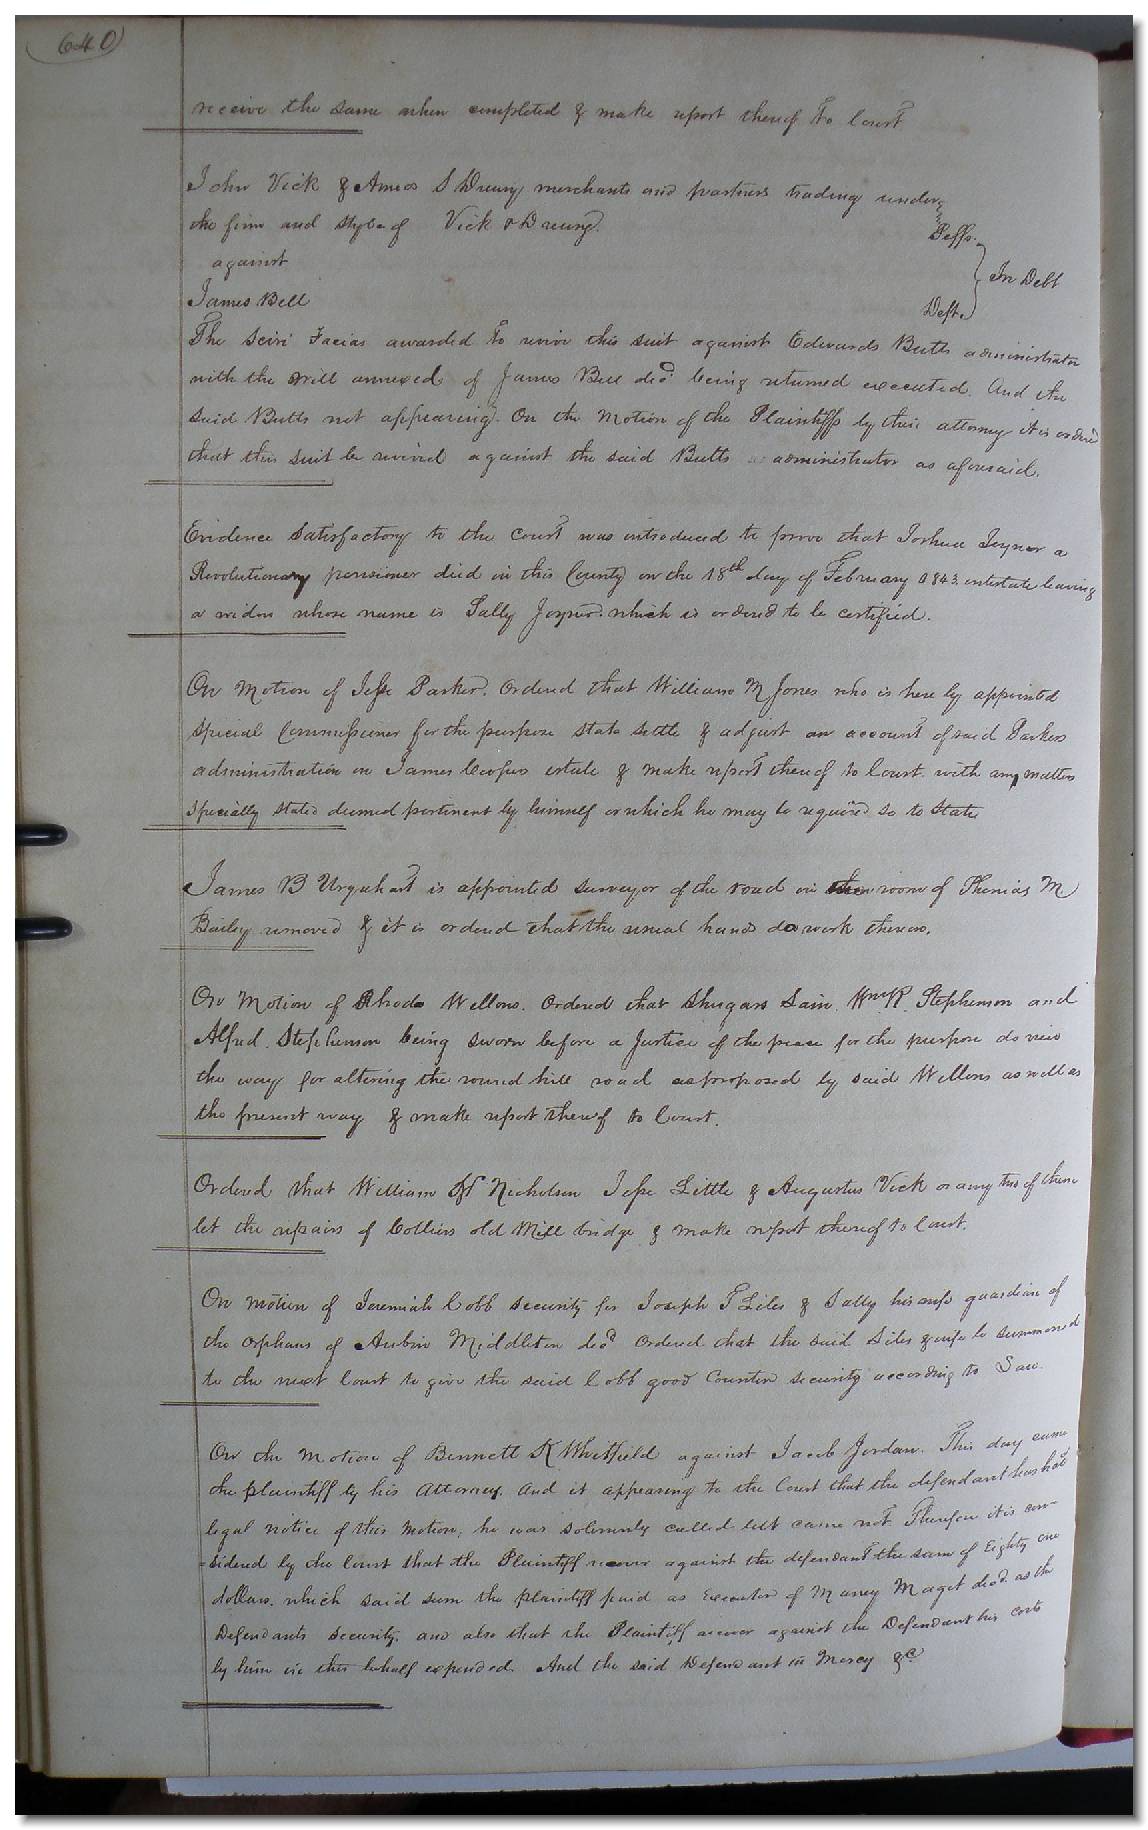 640
receive the same when completed & make report thereof to Court
John Vick & Amos S Drewry merchants and partners trading under
the firm and style of Vick & Drewry.
Peffs.
against
In Debt
James Bell
Deft.
The Sciri Facias awarded to revive this suit against Edwards Butts administrator
with the will annexed of James Bell decd. being returned executed. And the
said Butts not appearing. On the Motion of the Plaintiffs by their attorney it is ordered
that this suit be revived against the said Butts administrator as aforesaid.
Evidence satisfactory to the court was introduced to prove that Joshua Joyner a
Revolutionary pensioner died in this County on the 18th day of February 1843 intestate leaving
a widow whose name is Sally Joyner. which is ordered to be certified.
On Motion of Jesse Parker. Ordered that William M Jones who is here by appointed
special Commissioner for the purpose state settle & adjust an account of said Parkers
administration on James Coopers estate & make report thereof to Court. with any matters
specially stated deemed pertinent by himself or which he may be required so to State
James B Urquhart is appointed surveyor of the road in room of M
Bailey removed & it is ordered that the usual hands do work thereon.
On Motion of Rhoda Wellons. Ordered that Shugars Lain, Wm R. Stephenson and
Alfred. Stephenson being sworn before a Justice of the peace for the purpose do view
the way for altering the round hill road as proposed by said Wellons as well as
the present way & make report thereof to Court.
Ordered that William H Nicholson Jesse Little & Augustus Vick or any two of them
let the repairs of Colliers old Mill bridge & make report thereof to Court.
On motion of Jeremiah Cobb security for Joseph T Liles & Sally his wife guardian of
the orphans of Middleton decd ordered that the said Liles & wife be summoned
to the next Court to give the said Cobb good Counter security according to Law.
On the Motion of Bennett K Whitfield against Jacob Jordan. This day came
the plaintiff by his Attorney. And it appearing to the Court that the defendant has had
legal notice of this Motion, he was solemnly called but came not. Therefore it is con-
=sidered by the Court that the Plaintiff recover against the defendant the sum of Eighty one
dollars. which said sum the plaintiff paid as Executor of Maget decd. as the
Defendants security. and also that the Plaintiff recover against the Defendant his costs
by him in this behalf expended. And the said Defendant in Mercy &c